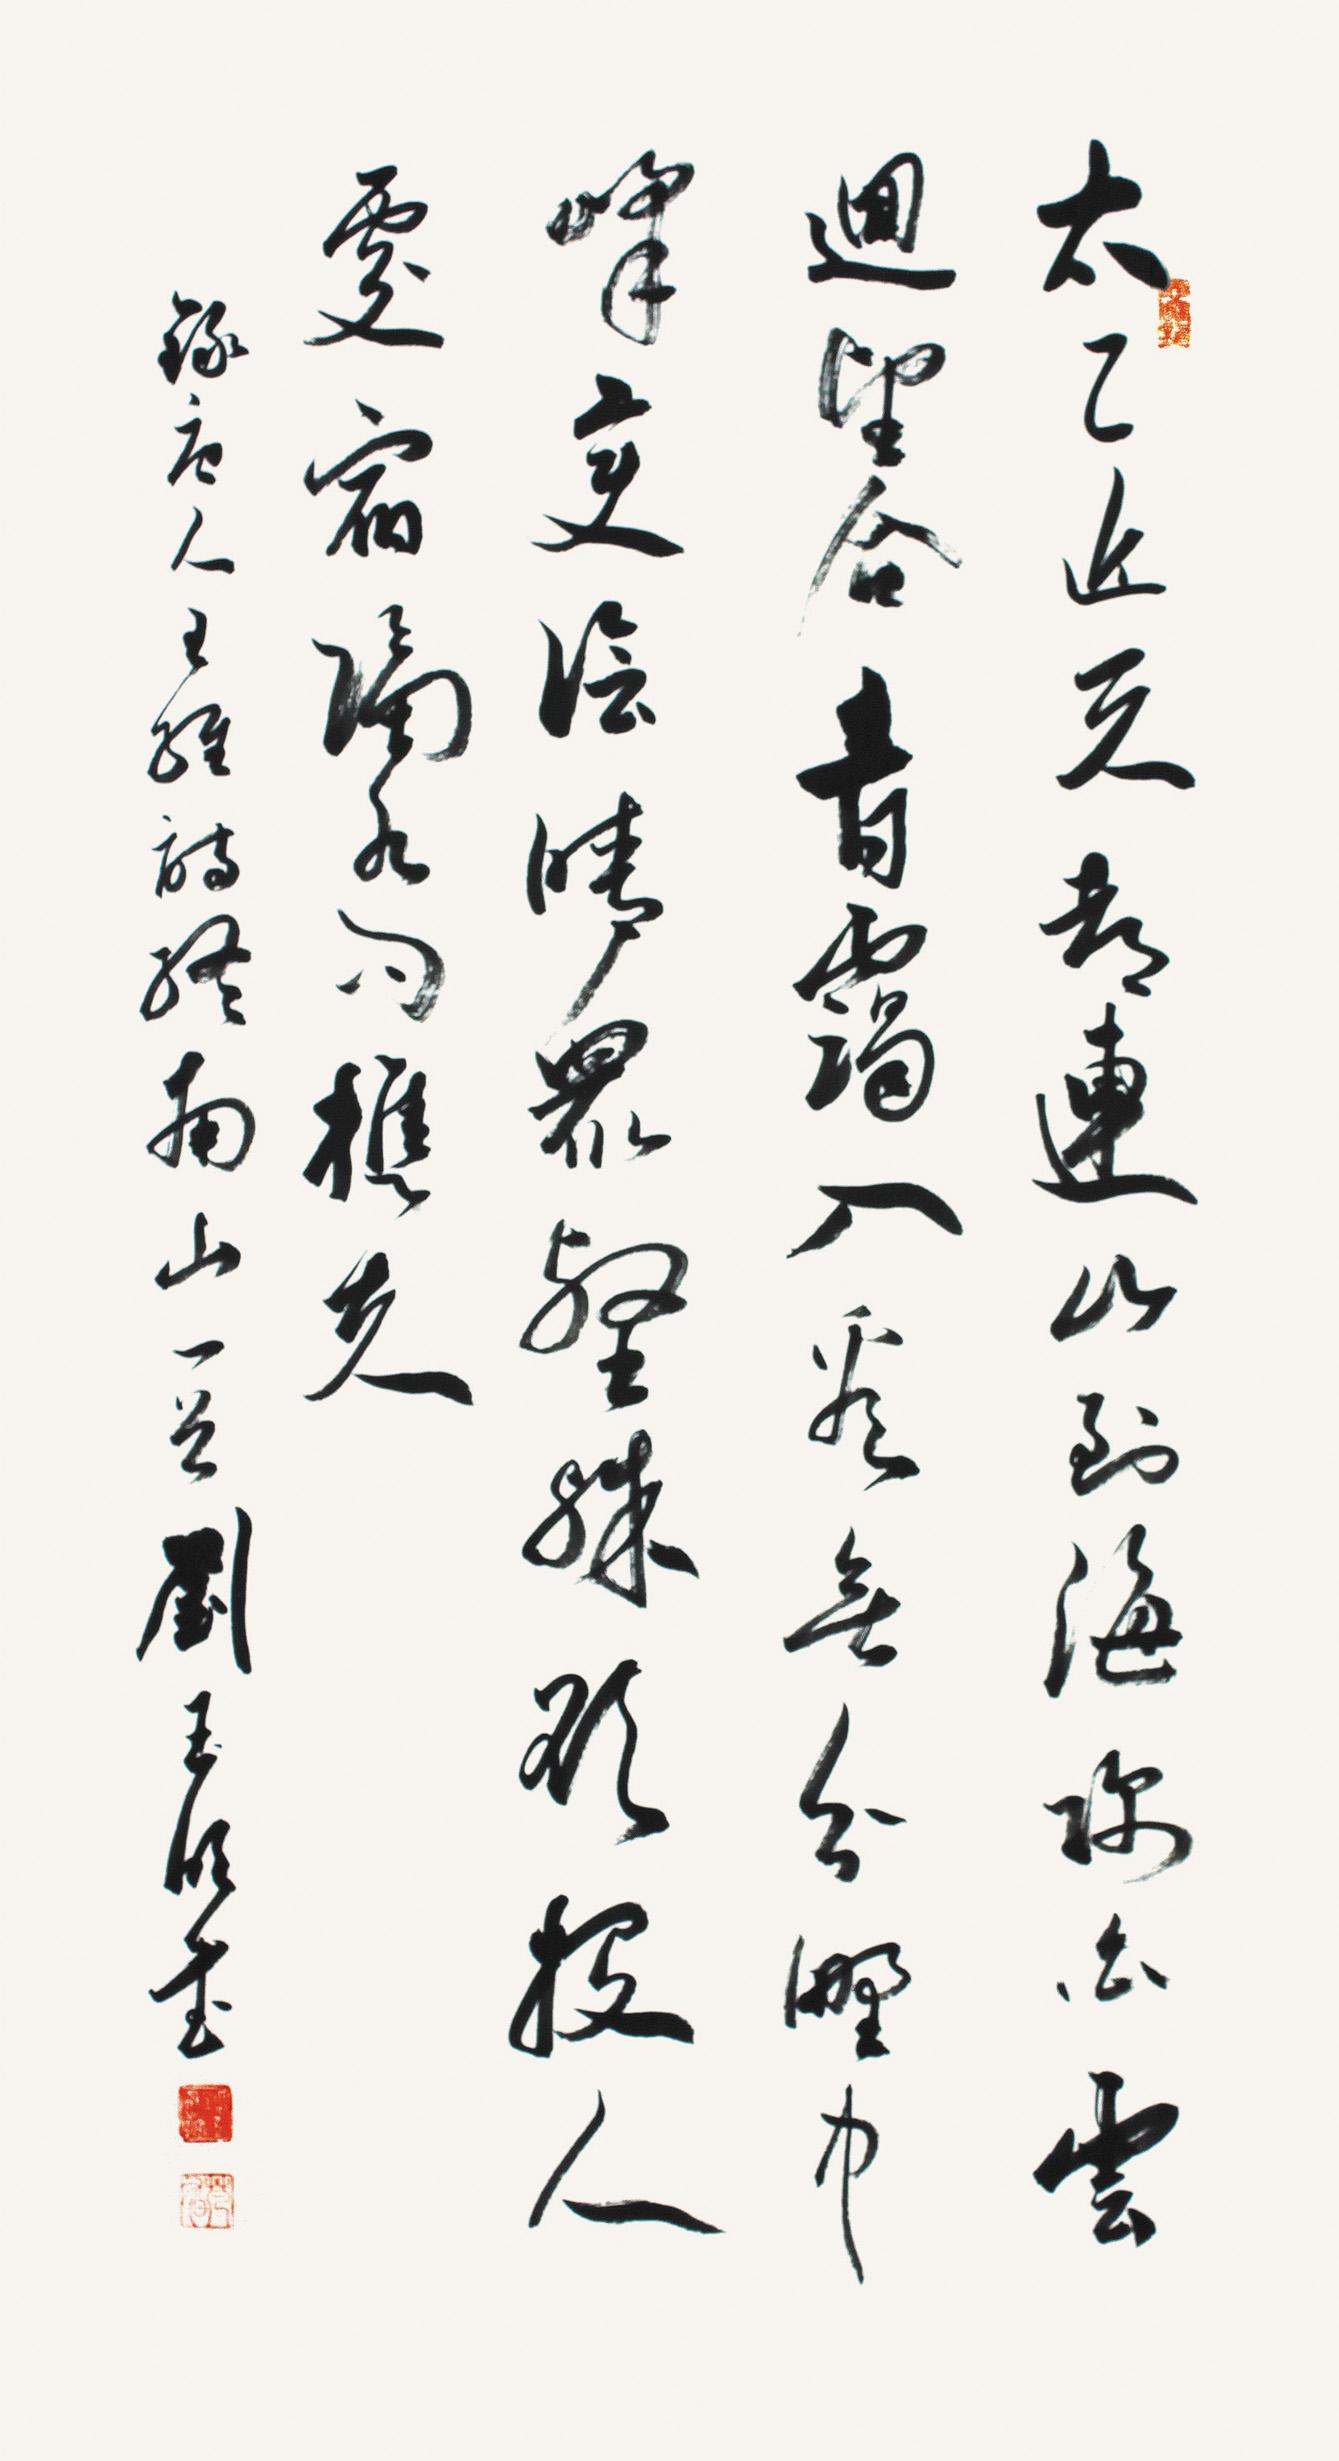 太乙近天都連山到海隅白雲
迴望合青靄入看無分野中
峰變陰晴眾壑殊欲投人
處宿隔水問樵夫
錄唐人王維詩終南山一首劉玉書